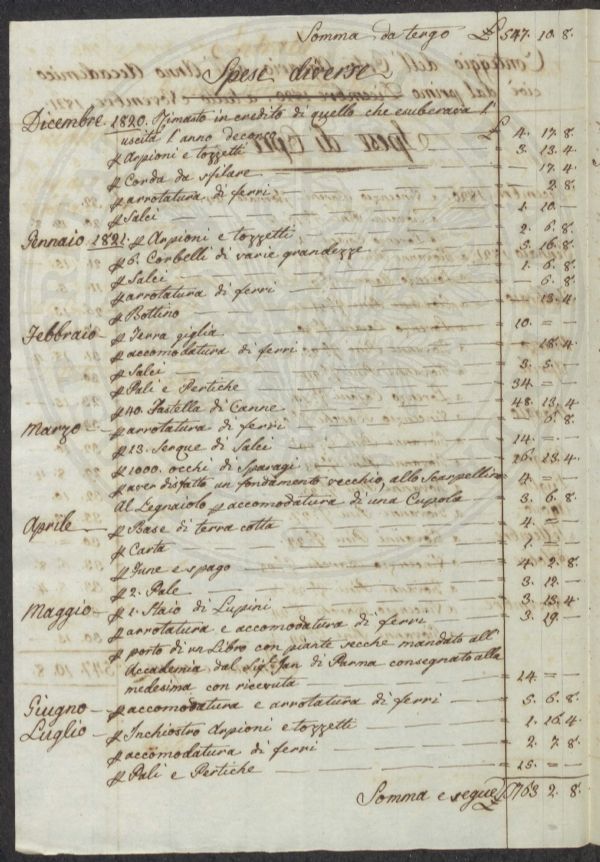 Somma da tergo £ 547. 10. 8.
Spese diverse
Dicembre 1820. Rimasto in credito di quello che esuberava l'
uscita l'anno decorso £ 4. 17. 8.
p Arpioni e tozzetti — 3. 13. 4.
p Corda da sfilare — — 17. 4.
p arrotatura di ferri — — 2. 8.
p Salci — 1. 10. —
Gennaio 1821. p Arpioni e tozzetti — 2. 6. 8.
p 6. Corbelli di varie grandezze — 5. 16. 8.
p Salci — 1. 6. 8.
p arrotatura di ferri — — 6. 8.
p Bottino — — 13. 4.
Febbraio — p Terra giglia — = 10. = —
p accomodatura di ferri — = — 18. 4.
p Salci — = 3. 5. —
p Pali e Pertiche — = 34. = —
p 40. Fastella di Canne — = 48. 13. 4.
Marzo — p arrotatura di ferri — = — 6. 8.
p 13. Serque di Salci — = 14. = —
p 1000. occhi di Sparagi — = 26. 13. 4.
p aver disfatto un fondamento vecchio, allo Scarpellino = 4. = —
Al Legnaiolo p accomodatura di una Cupola — = 3. 6. 8.
Aprile — p Base di terra cotta — = 4. = —
p Carta — = 1. = —
p Fune e spago — = 4. 2. 8.
p 2. Pale — = 3. 12. —
Maggio — p 1. Staio di Lupini — = 3. 13. 4.
p arrotatura e accomodatura di ferri — = 3. 19. —
p porto di un Libro con piante secche mandato all'
Accademia dal Sig. Jan di Parma consegnato alla
medesima con ricevuta — = 24. = —
Giugno — p accomodatura e arrotatura di ferri — = 5. 6. 8.
Luglio — p Inchiostro Arpioni e tozzetti — = 1. 16. 4.
p accomodatura di ferri — = 2. 7. 8.
p Pali e Pertiche — = 25. = —
Somma e segue £ 763 2. 8.